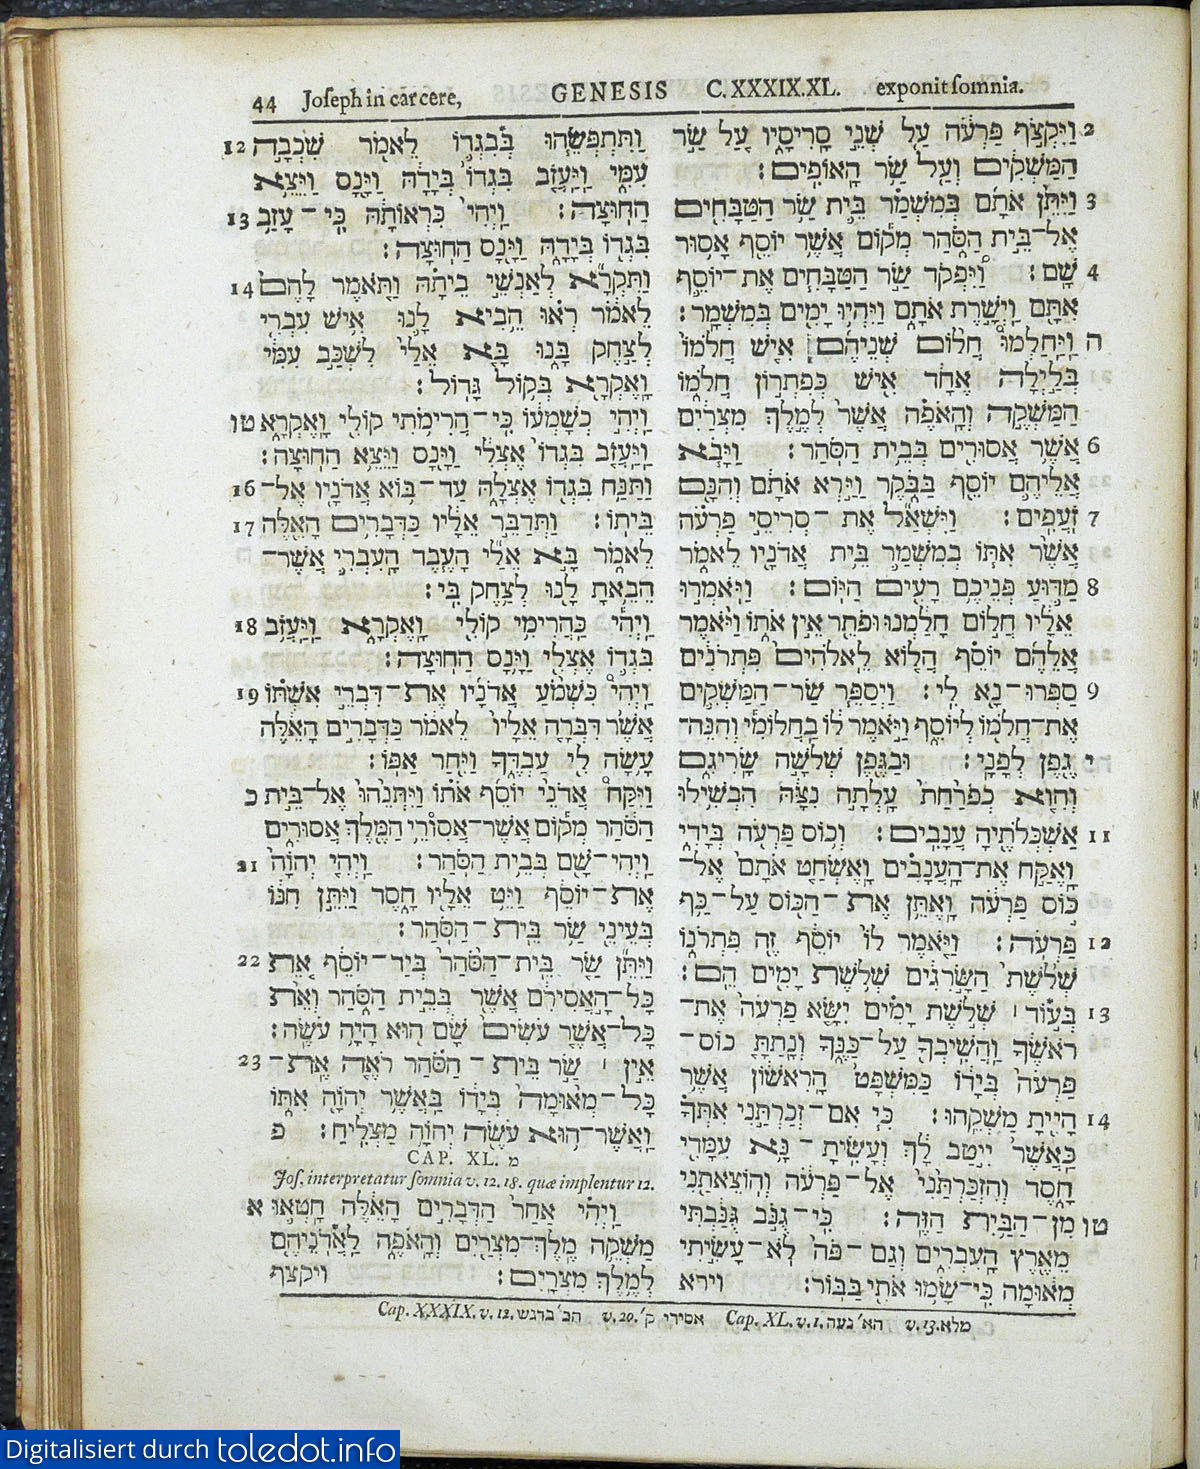 44 Joseph in carcere, GENESIS C. XXXIX. XL. exponit somnia.
12 וַתִּתְפְּשֵׂהוּ בְּבִגְדוֹ לֵאמֹר שִׁכְבָה
עִמִּי וַיַּעֲזֹב בִּגְדוֹ בְּיָדָהּ וַיָּנָס וַיֵּצֵא
13 הַחוּצָה: וַיְהִי כִּרְאוֹתָהּ כִּי־עָזַב
בִּגְדוֹ בְּיָדָהּ וַיָּנָס הַחוּצָה:
14 וַתִּקְרָא לְאַנְשֵׁי בֵיתָהּ וַתֹּאמֶר לָהֶם
לֵאמֹר רְאוּ הֵבִיא לָנוּ אִישׁ עִבְרִי
לְצַחֶק בָּנוּ בָּא אֵלַי לִשְׁכַּב עִמִּי
וָאֶקְרָא בְּקוֹל גָּדוֹל:
טו וַיְהִי כְשָׁמְעוֹ כִּי־הֲרִימֹתִי קוֹלִי וָאֶקְרָא
וַיַּעֲזֹב בִּגְדוֹ אֶצְלִי וַיָּנָס וַיֵּצֵא הַחוּצָה:
16 וַתַּנַּח בִּגְדוֹ אֶצְלָהּ עַד־בּוֹא אֲדֹנָיו אֶל־
17 בֵּיתוֹ: וַתְּדַבֵּר אֵלָיו כַּדְּבָרִים הָאֵלֶּה
לֵאמֹר בָּא אֵלַי הָעֶבֶד הָעִבְרִי אֲשֶׁר־
הֵבֵאתָ לָּנוּ לְצַחֶק בִּי:
18 וַיְהִי כַּהֲרִימִי קוֹלִי וָאֶקְרָא וַיַּעֲזֹב
בִּגְדוֹ אֶצְלִי וַיָּנָס הַחוּצָה:
19 וַיְהִי כִשְׁמֹעַ אֲדֹנָיו אֶת־דִּבְרֵי אִשְׁתּוֹ
אֲשֶׁר דִּבְּרָה אֵלָיו לֵאמֹר כַּדְּבָרִים הָאֵלֶּה
עָשָׂה לִי עַבְדֶּךָ וַיִּחַר אַפּוֹ:
כ וַיִּקַּח אֲדֹנֵי יוֹסֵף אֹתוֹ וַיִּתְּנֵהוּ אֶל־בֵּית
הַסֹּהַר מְקוֹם אֲשֶׁר־אֲסוּרֵי הַמֶּלֶךְ אֲסוּרִים
21 וַיְהִי־שָׁם בְּבֵית הַסֹּהַר: וַיְהִי יְהוָֹה
אֶת־יוֹסֵף וַיֵּט אֵלָיו חָסֶד וַיִּתֵּן חִנּוֹ
בְּעֵינֵי שַׂר בֵּית־הַסֹּהַר:
22 וַיִּתֵּן שַׂר בֵּית־הַסֹּהַר בְּיַד־יוֹסֵף אֵת
כָּל־הָאֲסִירִם אֲשֶׁר בְּבֵית הַסֹּהַר וְאֵת
כָּל־אֲשֶׁר עֹשִׂים שָׁם הוּא הָיָה עֹשֶׂה:
23 אֵין ׀ שַׂר בֵּית־הַסֹּהַר רֹאֶה אֶת־
כָּל־מְאוּמָה בְּיָדוֹ בַּאֲשֶׁר יְהוָֹה אִתּוֹ
וַאֲשֶׁר־הוּא עֹשֶׂה יְהוָֹה מַצְלִיחַ: פ
CAP. XL. מ
Jos. interpretatur somnia v. 12. 18. quæ implentur 12.
א וַיְהִי אַחַר הַדְּבָרִים הָאֵלֶּה חָטְאוּ
מַשְׁקֵה מֶלֶךְ־מִצְרַיִם וְהָאֹפֶה לַאֲדֹנֵיהֶם
לְמֶלֶךְ מִצְרָיִם: ויקצף
2 וַיִּקְצֹף פַּרְעֹה עַל שְׁנֵי סָרִיסָיו עַל שַׂר
הַמַּשְׁקִים וְעַל שַׂר הָאוֹפִים:
3 וַיִּתֵּן אֹתָם בְּמִשְׁמַר בֵּית שַׂר הַטַּבָּחִים
אֶל־בֵּית הַסֹּהַר מְקוֹם אֲשֶׁר יוֹסֵף אָסוּר
4 שָׁם: וַיִּפְקֹד שַׂר הַטַּבָּחִים אֶת־יוֹסֵף
אִתָּם וַיְשָׁרֶת אֹתָם וַיִּהְיוּ יָמִים בְּמִשְׁמָר:
ה וַיַּחַלְמוּ חֲלוֹם שְׁנֵיהֶם אִישׁ חֲלֹמוֹ
בְּלַיְלָה אֶחָד אִישׁ כְּפִתְרוֹן חֲלֹמוֹ
הַמַּשְׁקֶה וְהָאֹפֶה אֲשֶׁר לְמֶלֶךְ מִצְרַיִם
6 אֲשֶׁר אֲסוּרִים בְּבֵית הַסֹּהַר: וַיָּבֹא
אֲלֵיהֶם יוֹסֵף בַּבֹּקֶר וַיַּרְא אֹתָם וְהִנָּם
7 זֹעֲפִים: וַיִּשְׁאַל אֶת־סְרִיסֵי פַרְעֹה
אֲשֶׁר אִתּוֹ בְמִשְׁמַר בֵּית אֲדֹנָיו לֵאמֹר
8 מַדּוּעַ פְּנֵיכֶם רָעִים הַיּוֹם: וַיֹּאמְרוּ
אֵלָיו חֲלוֹם חָלַמְנוּ וּפֹתֵר אֵין אֹתוֹ וַיֹּאמֶר
אֲלֵהֶם יוֹסֵף הֲלוֹא לֵאלֹהִים פִּתְרֹנִים
9 סַפְּרוּ־נָא לִי: וַיְסַפֵּר שַׂר־הַמַּשְׁקִים
אֶת־חֲלֹמוֹ לְיוֹסֵף וַיֹּאמֶר לוֹ בַּחֲלוֹמִי וְהִנֵּה־
י גֶפֶן לְפָנָי: וּבַגֶּפֶן שְׁלֹשָׁה שָׂרִיגִם
וְהִוא כְפֹרַחַת עָלְתָה נִצָּהּ הִבְשִׁילוּ
11 אַשְׁכְּלֹתֶיהָ עֲנָבִים: וְכוֹס פַּרְעֹה בְּיָדִי
וָאֶקַּח אֶת־הָעֲנָבִים וָאֶשְׂחַט אֹתָם אֶל־
כּוֹס פַּרְעֹה וָאֶתֵּן אֶת־הַכּוֹס עַל־כַּף
12 פַּרְעֹה: וַיֹּאמֶר לוֹ יוֹסֵף זֶה פִּתְרֹנוֹ
שְׁלֹשֶׁת הַשָּׂרִגִים שְׁלֹשֶׁת יָמִים הֵם:
13 בְּעוֹד ׀ שְׁלֹשֶׁת יָמִים יִשָּׂא פַרְעֹה אֶת־
רֹאשֶׁךָ וַהֲשִׁיבְךָ עַל־כַּנֶּךָ וְנָתַתָּ כוֹס־
פַּרְעֹה בְּיָדוֹ כַּמִּשְׁפָּט הָרִאשׁוֹן אֲשֶׁר
14 הָיִיתָ מַשְׁקֵהוּ: כִּי אִם־זְכַרְתַּנִי אִתְּךָ
כַּאֲשֶׁר יִיטַב לָךְ וְעָשִׂיתָ־נָּא עִמָּדִי
חָסֶד וְהִזְכַּרְתַּנִי אֶל־פַּרְעֹה וְהוֹצֵאתַנִי
טו מִן־הַבַּיִת הַזֶּה: כִּי־גֻנֹּב גֻּנַּבְתִּי
מֵאֶרֶץ הָעִבְרִים וְגַם־פֹּה לֹא־עָשִׂיתִי
מְאוּמָה כִּי־שָׂמוּ אֹתִי בַּבּוֹר: וירא
Cap. XXXIX. v. 12. הב׳ בדגש v. 20. אסירי ק׳ Cap. XL. v. 1. הא׳ געה v. 13. מלא
Digitalisiert durch toledot.info